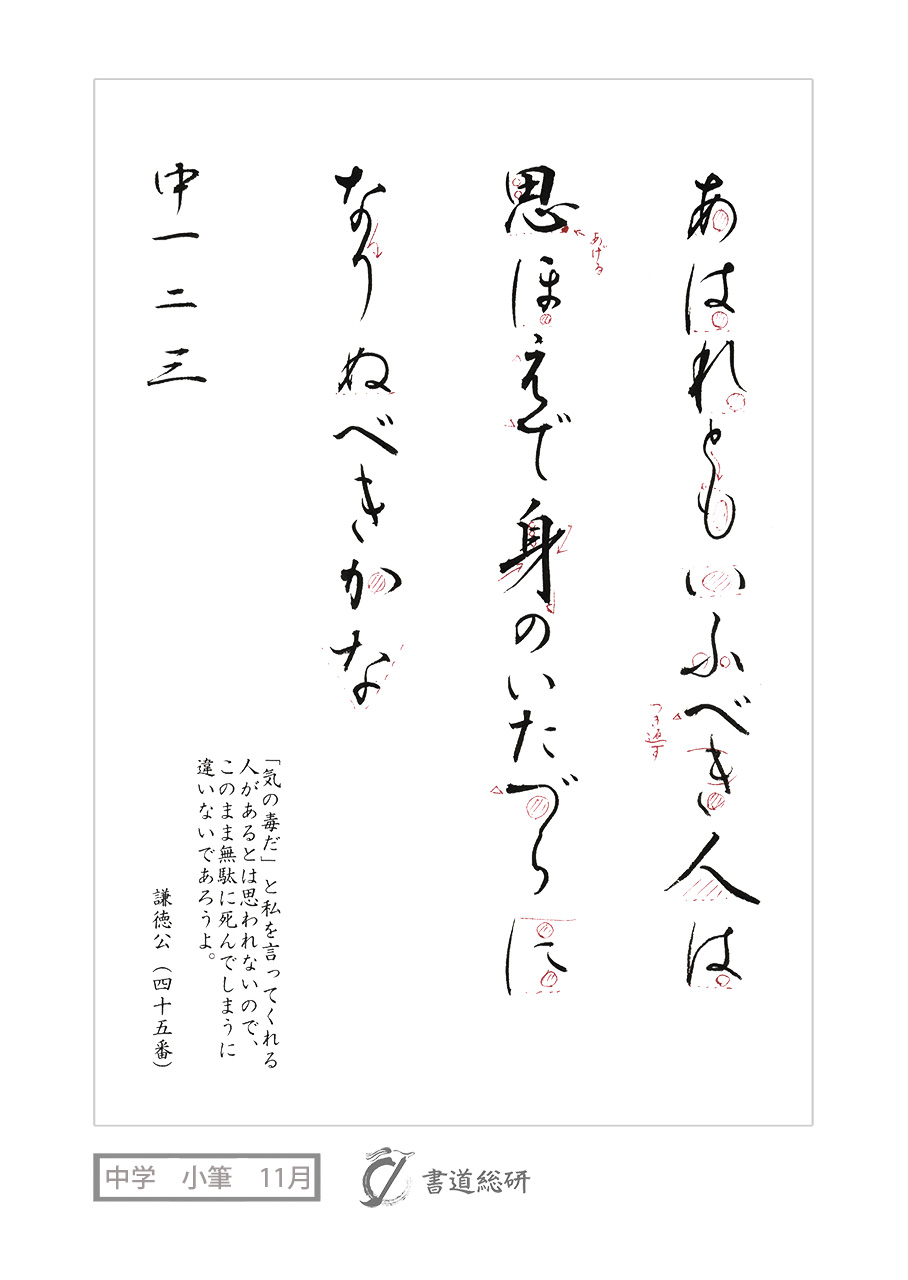 あはれともいふべき人は
つき返す
思ほえで身のいたづらに
あげる
なりぬべきかな
中一二三
「気の毒だ」と私を言ってくれる
人があるとは思われないので、
このまま無駄に死んでしまうに
違いないであろうよ。
謙徳公（四十五番）
中学　小筆　11月
書道総研